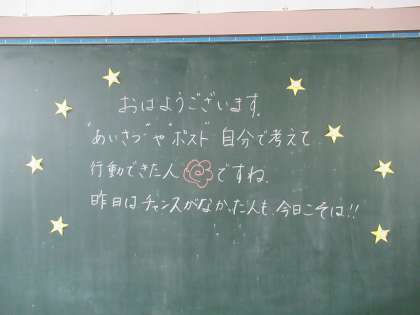 おはようございます。
"あいさつ"や"ポスト"自分で考えて
行動できた人ですね。
昨日はチャンスがなかった人も、今日こそは!!